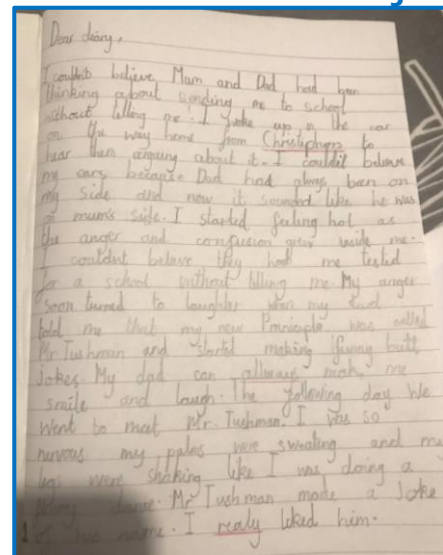 Dear diary,
I couldn't believe Mum and Dad had been
thinking about sending me to school
without telling me. I woke up in the car
on the way home from Christophers to
hear them arguing about it. I couldn't believe
my ears, because Dad had always been on
my side and now it sounded like he was
on mum's side. I started feeling hot as
the anger and confusion grew inside me.
I couldnt believe they had me tested
for a school without telling me. My anger
soon turned to laughter when my dad
told me that my new Principle was called
Mr Tushman and started making funny butt
Jokes. My dad can allways make me
smile and laugh. The following day We
went to meet Mr. Tushman. I was so
nurvous my palms were sweating and my
legs were shaking like I was doing a
dance. Mr Tushman made a Joke
of his name. I realy liked him.
1